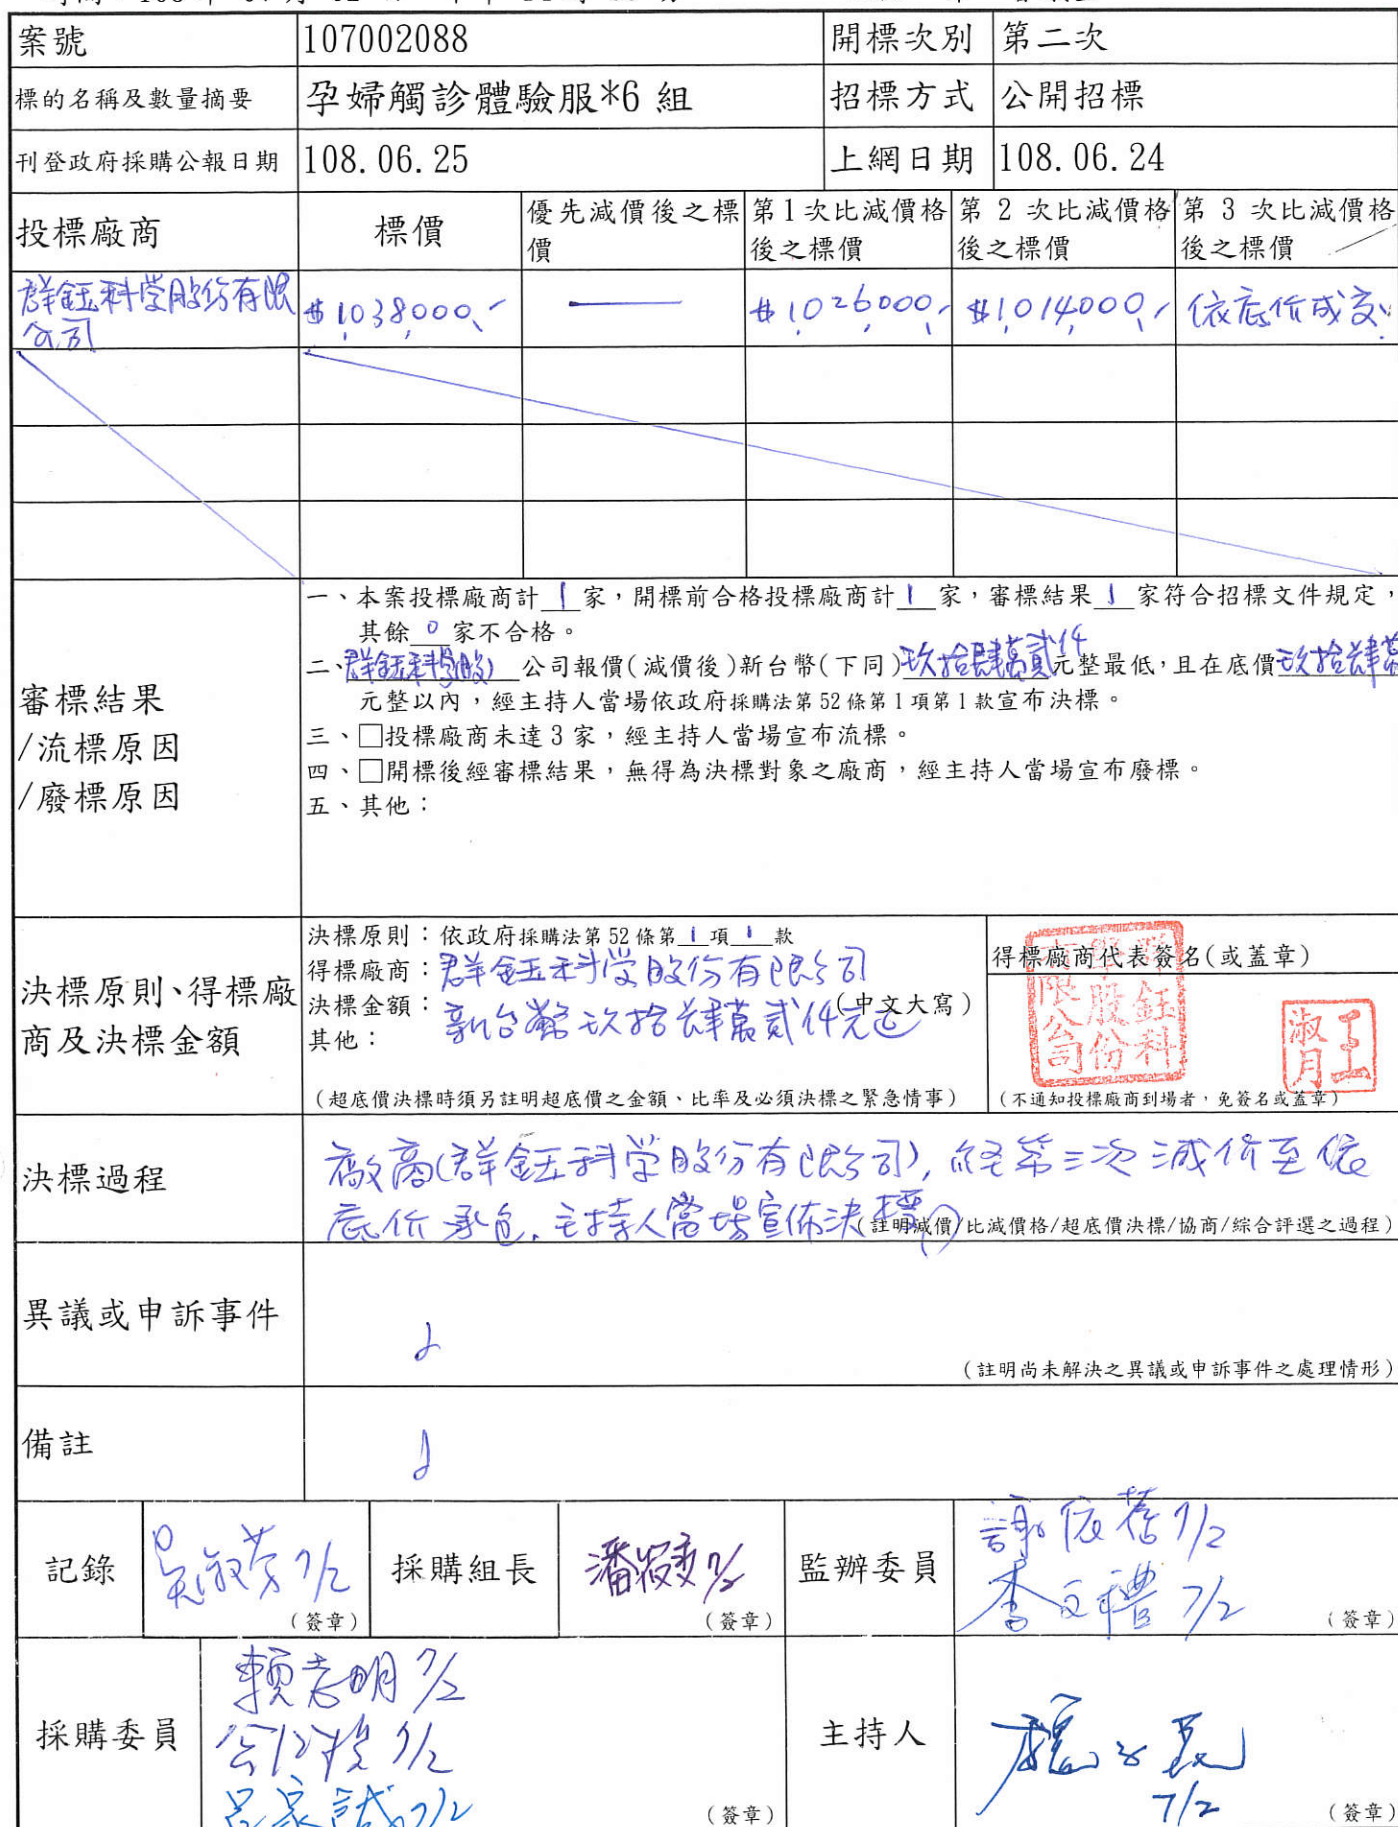 案號 107002088 開標次別 第二次
標的名稱及數量摘要 孕婦觸診體驗服*6 組 招標方式 公開招標
刊登政府採購公報日期 108.06.25 上網日期 108.06.24
投標廠商 標價 優先減價後之標價 第1次比減價格後之標價 第 2 次比減價格後之標價 第 3 次比減價格後之標價
群鈺科学股份有限公司 $1,038,000.- $1,026,000.- $1,014,000.- 依底价成交.
審標結果
/流標原因
/廢標原因
一、本案投標廠商計 1 家，開標前合格投標廠商計 1 家，審標結果 1 家符合招標文件規定，
其餘 0 家不合格。
二、群鈺科学(股) 公司報價(減價後)新台幣(下同)玖拾肆萬貳仟元整最低，且在底價玖拾肆萬
元整以內，經主持人當場依政府採購法第52條第1項第1款宣布決標。
三、□投標廠商未達3家，經主持人當場宣布流標。
四、□開標後經審標結果，無得為決標對象之廠商，經主持人當場宣布廢標。
五、其他：
決標原則、得標廠
商及決標金額
決標原則：依政府採購法第52條第 1 項 1 款
得標廠商：群鈺科学股份有限公司
決標金額：新台幣玖拾肆萬貳仟元正 (中文大寫)
其他：
(超底價決標時須另註明超底價之金額、比率及必須決標之緊急情事)
得標廠商代表簽名(或蓋章)
群鈺科學股份有限公司
王淑月
(不通知投標廠商到場者，免簽名或蓋章)
決標過程
廠商(群鈺科学股份有限公司), 経第三次減价至依
底价承包, 主持人當場宣佈決標
(註明減價/比減價格/超底價決標/協商/綜合評選之過程)
異議或申訴事件
(註明尚未解決之異議或申訴事件之處理情形)
備註
記錄 7/2 (簽章) 採購組長 7/2 (簽章) 監辦委員 7/2
7/2 (簽章)
採購委員 7/2
7/2
7/2 (簽章)
主持人
7/2 (簽章)